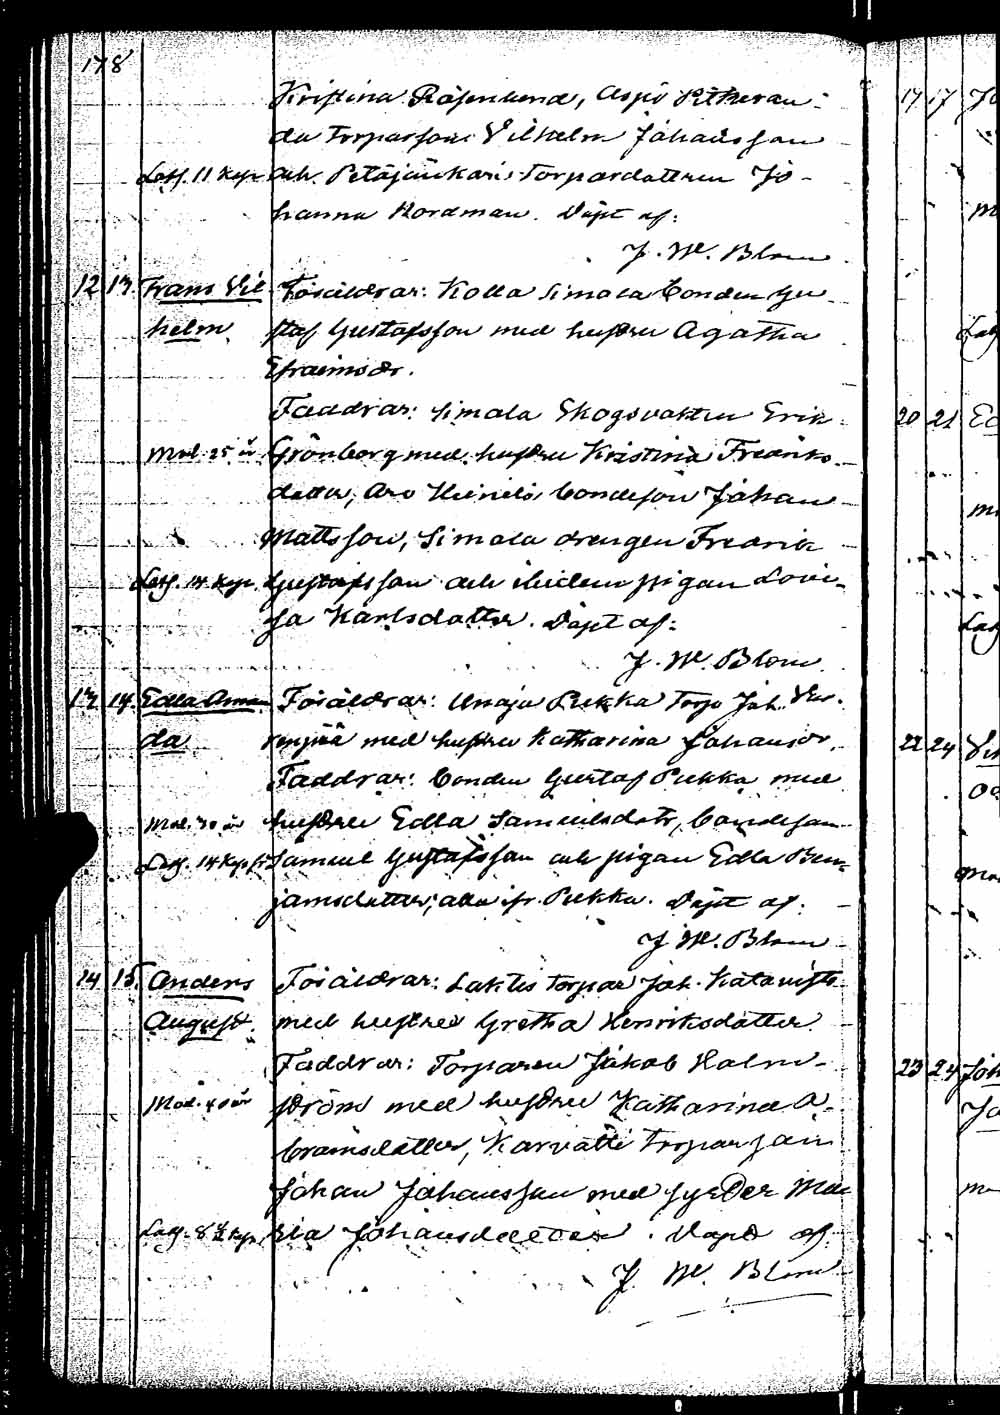 178
Kristina Rosenlund, Aspö
da Torparson Vilhelm Johansson
Lösf. 11 kop. och Petäjänkari Torpardottren Jo-
hanna Nordman. Döpt af:
J. W. Blom
12 13. Frans Vil Föräldrar: Kolla Simola bonden Gu-
helm. staf Gustafsson med hustru Agatha
Efraimsdr.
Faddrar: Simola Skogsvakten Erik
Mod. 25 år Grönberg med hustru Kristina Fredriks-
dotter, Aro bondeson Johan
Mattsson, Simola drengen Fredrik
Lösf. 14 kop. Gustafsson och pigan Lovi-
sa Karlsdotter. Döpt af:
J. W. Blom
13 14. Edla Aman Föräldrar: Unaja Pukka Torp. Joh.
da. med hustru Katharina Johansdr.
Faddrar: bonden Gustaf Pukka med
Mod. 30 år hustru Edla Samuelsdotr, bondeson
Lösf. 14 kop. Samuel Gustafsson och pigan Edla Ben-
jamsdotter; alla ifr. Pukka. Döpt af:
J. W. Blom
14 15. Anders Föräldrar: Torpar Joh. Katavisto
August. med hustru Gretha Henriksdotter
Faddrar: Torparen Jakob Holm-
Mod. 40 år ström med hustru Katharina A-
bramsdotter, Karvatti Torparson
Johan Johansson med syster Ma-
Lösf. 8 ½ kop. ria Johansdotter. Döpt af:
J. W. Blom
17 17
20 21 Ed
22 24
23 24 Joh